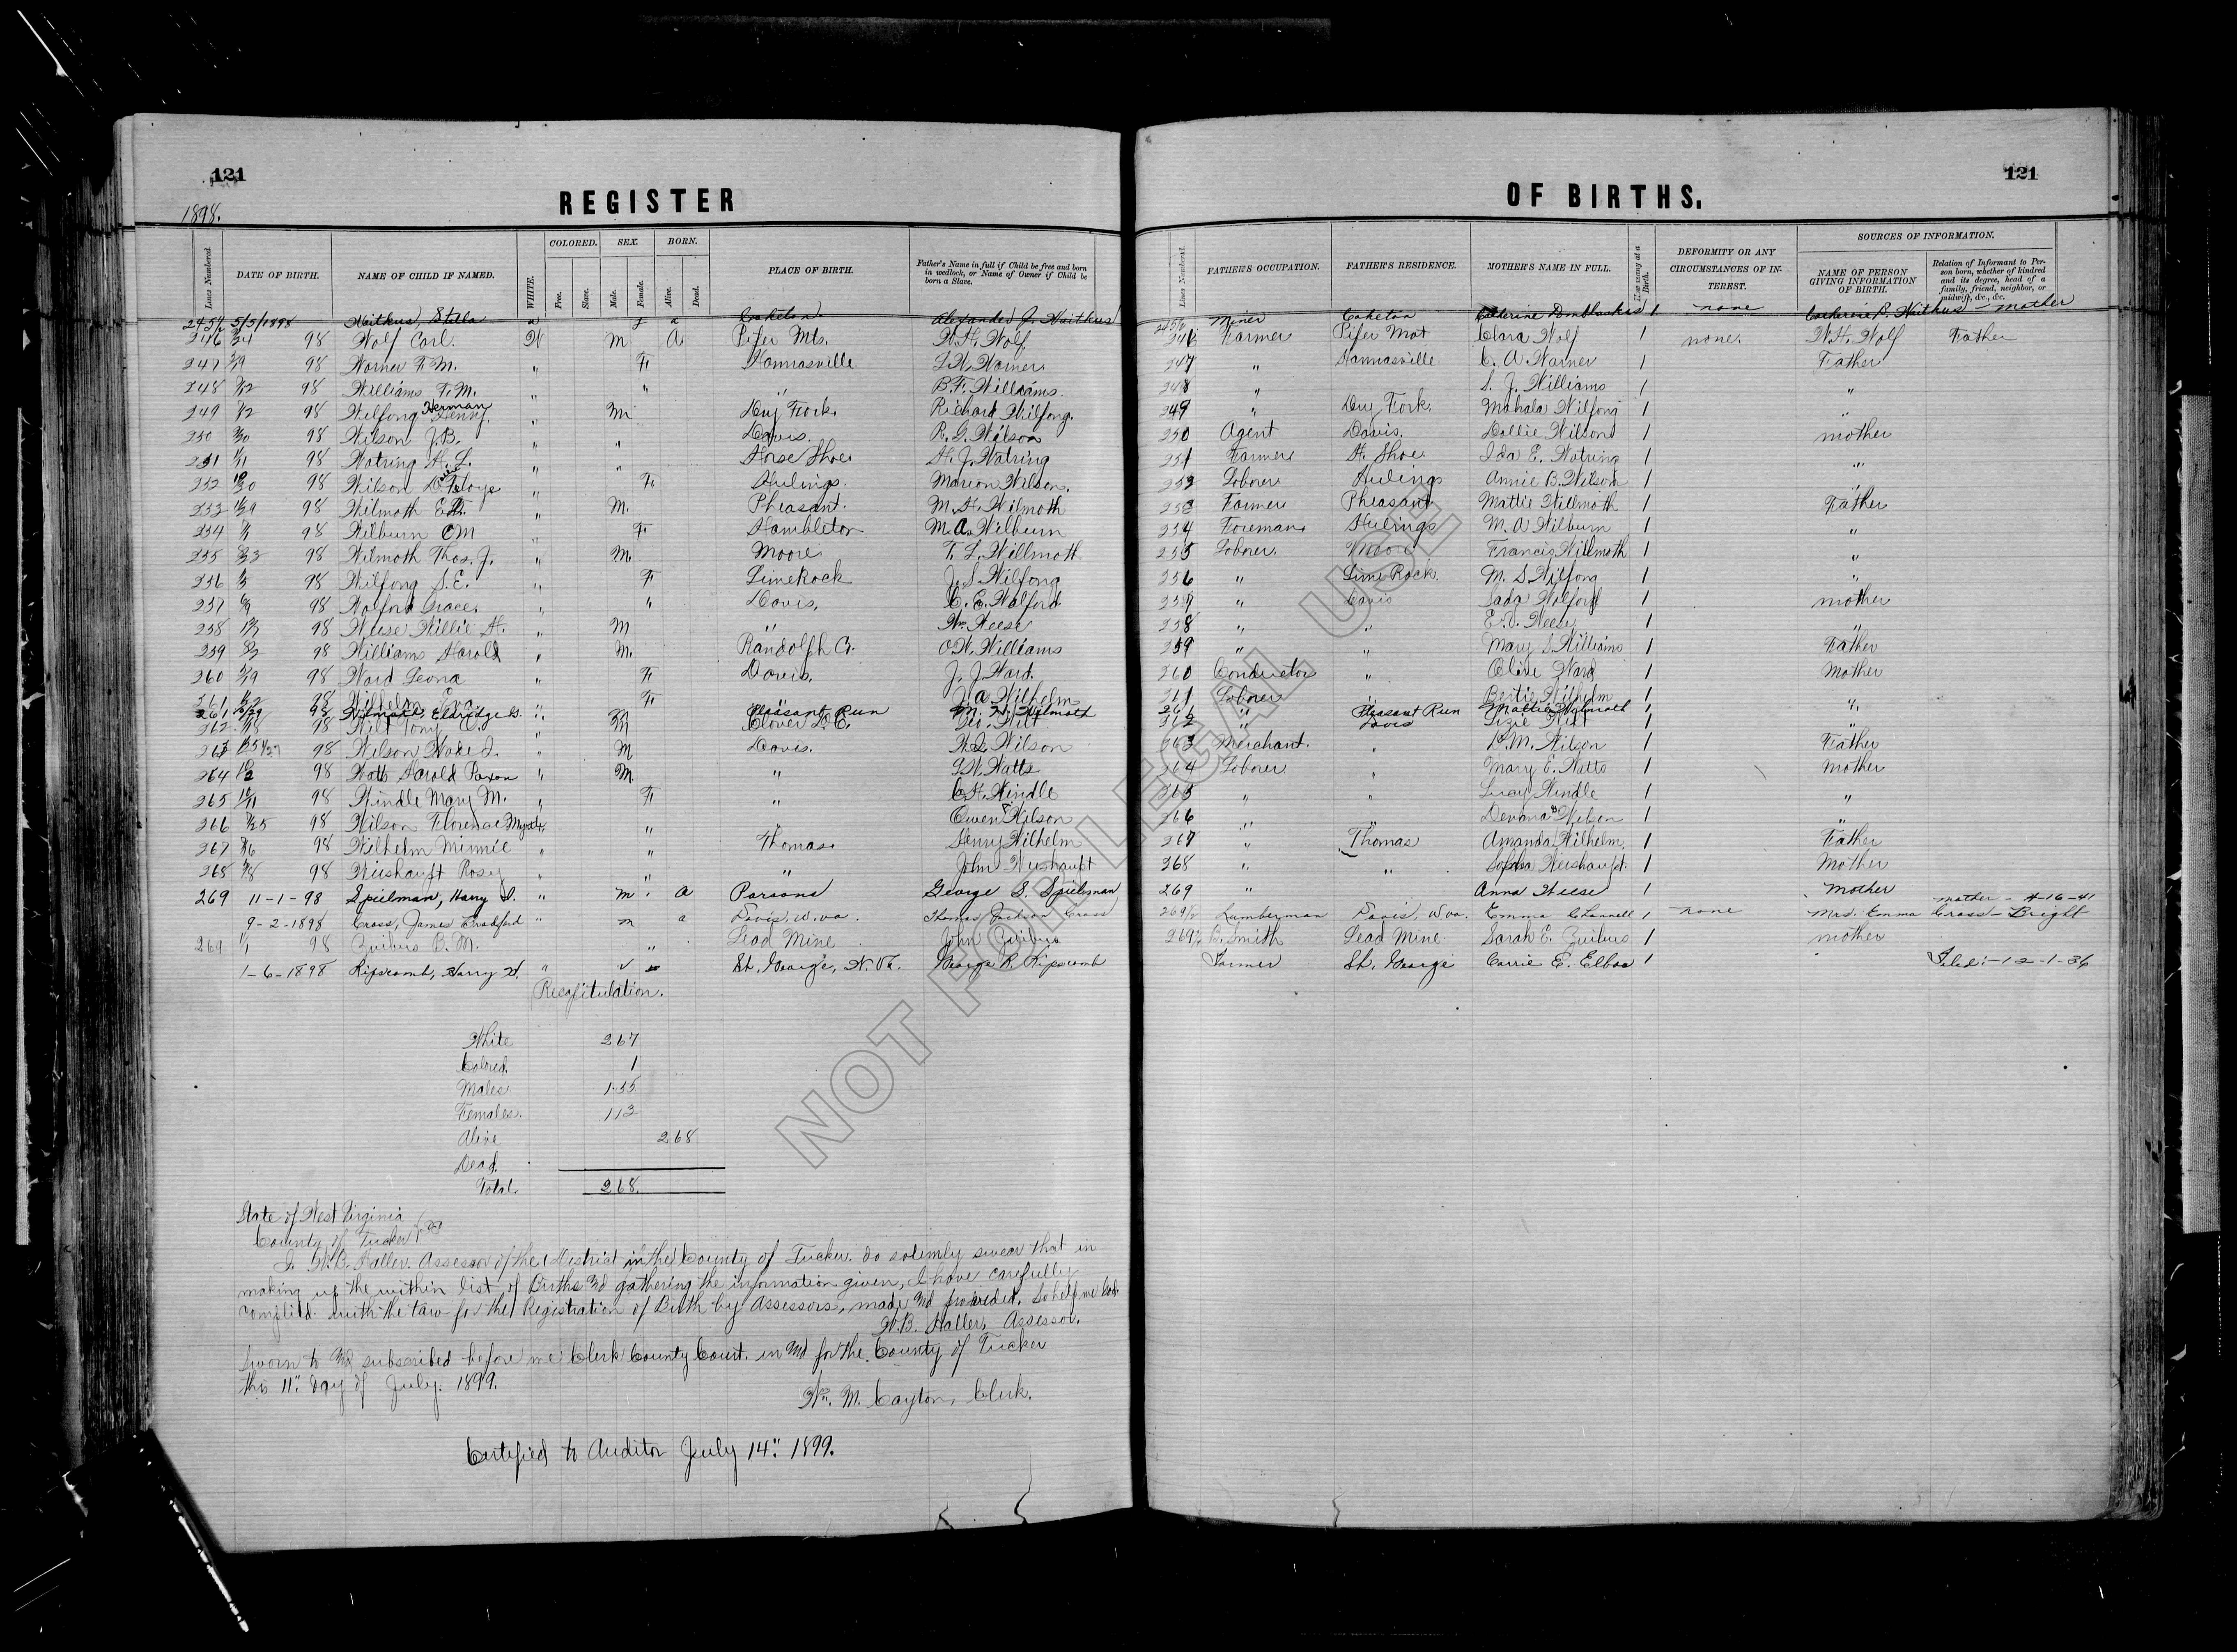 121
121
REGISTER
OF BIRTHS.
1898.
Lines Numbered. DATE OF BIRTH. NAME OF CHILD IF NAMED. WHITE. COLORED. Free. Slave. SEX. Male. Female. BORN. Alive. Dead. PLACE OF BIRTH. Father's Name in full if Child be free and born in wedlock, or Name of Owner if Child be born a Slave.
Lines Numbered. FATHER'S OCCUPATION. FATHER'S RESIDENCE. MOTHER'S NAME IN FULL. How many at a Birth. DEFORMITY OR ANY CIRCUMSTANCES OF INTEREST. SOURCES OF INFORMATION. NAME OF PERSON GIVING INFORMATION OF BIRTH. Relation of Informant to Person born, whether of kindred and its degree, head of a family, friend, neighbor, or midwife, &c., &c.
245½ 5/5/1898 Waitkus, Stella f a Coketon Alexander J. Waitkus 245½ Miner Coketon Catherine 1 none Catherine P. Waitkus - mother
246 98 Wolf Carl. W M A Pifer Mts. W.H. Wolf 246 Farmer Pifer Mot Clara Wolf 1 none. W.H. Wolf Father
247 98 Warner F.M. " F Hannasville L.W. Warner 247 " Hannasville C. A Warner 1 Father
248 98 Williams F.M. " " " B.F. Williams 248 " S. J. Williams 1 "
249 98 Wilfong Herman Henry. " M Dry Fork. Richard Wilfong. 249 " Dry Fork. Mahala Wilfong 1 "
250 98 Wilson J.B. " " Davis. R.G. Wilson 250 Agent Davis. Dollie Wilson 1 mother
251 98 Watring H.L. " " Horse Shoe H. J. Watring 251 Farmer H. Shoe Ida E. Watring 1 "
252 98 Wilson " F Hulings. Marion Wilson. 252 Laborer Hulings Annie B. Wilson 1 "
253 98 Wilmoth " M. Pheasant. M.H. Wilmoth 253 Farmer Pheasant Mattie Willmoth 1 Father
254 98 Wilburn C M " F Hambleton M.A. Wilburn 254 Foreman Hulings M. A Wilburn 1 "
255 98 Wilmoth Thos. J. " M. Moore T. L. Willmoth 255 Laborer. Moore Francis Willmoth 1 "
256 98 Wilfong S.E. " F LimeRock J.S. Wilfong 256 " Lime Rock. M. S. Wilfong 1 "
257 98 Wolford Grace. " " Davis. C.E. Wolford 257 " Davis Sada Wolford 1 mother
258 98 Weese Willie H. " M " Wm. Weese 258 " " E.V. Weese 1 "
259 98 Williams Harold " M. Randolph Co. O.W. Williams 259 " " Mary S. Williams 1 Father
260 98 Ward Leona " F Davis. J.J. Ward. 260 Conductor " Olive Ward 1 Mother
261 98 Wilhelm Eva " F " J.A. Wilhelm 261 Laborer " Bertie Wilhelm 1 "
261 98 Wilmoth Eldridge G. " M Pleasant Run M. H. Wilmoth 261 " Pleasant Run Mattie Wilmoth 1
262 98 Wilt Tony C. " M Clover Wilt 262 " Davis Lizzie Wilt 1 "
263 98 Wilson Wade D. " M Davis. Wilson 263 Merchant. " D.M. Wilson 1 Father
264 98 Watts Harold Paxon " M. " Watts 264 Laborer " Mary E. Watts 1 Mother
265 98 Windle Mary M. " F " C.H. Windle 265 " " Lucy Windle 1 "
266 98 Wilson Florence Myrtle " " " Owen Wilson 266 " " Wilson 1 "
267 98 Wilhelm Minnie " " Thomas Henry Wilhelm 267 " Thomas Amanda Wilhelm 1 Father
268 98 Wieshauft Rosy " " " John Wieshauft 268 " " Wieshauft 1 Mother
269 11-1-98 Spielman, Harry S. " m A Parsons George S. Spielman 269 " Anna Weese 1 Mother
mother - 4-16-41
9-2-1898 Cross, James Bradford " m a Davis, W.Va. Thomas Jackson Cross 269½ Lumberman Davis, W Va. Emma 1 none Mrs. Emma Cross - Bright
269 98 B.M. " Lead Mine John 269½ B.Smith Lead Mine Sarah E. 1 mother
1-6-1898 Lipscomb, Harry W. " St. George, W. Va. George R. Lipscomb Farmer St. George Carrie E. 1 Filed:-12-1-36
Recapitulation.
White 267
Colored. 1
Males 155
Females. 113
Alive 268
Dead.
Total. 268.
State of West Virginia
County of Tucker
I. W.B. Haller. Assessor of the District in the County of Tucker. do solemly swear that in
making up the within list of Births and gathering the information given, I have carefully
complied with the law for the Registration of Birth by Assessors, made and provided. So help me God.
W.B. Haller. Assessor.
Sworn to and subscribed before me Clerk County Court. in and for the County of Tucker
this 11" day of July. 1899.
Wm. M. Cayton, Clerk.
Certified to Auditor July 14" 1899.
NOT FOR LEGAL USE